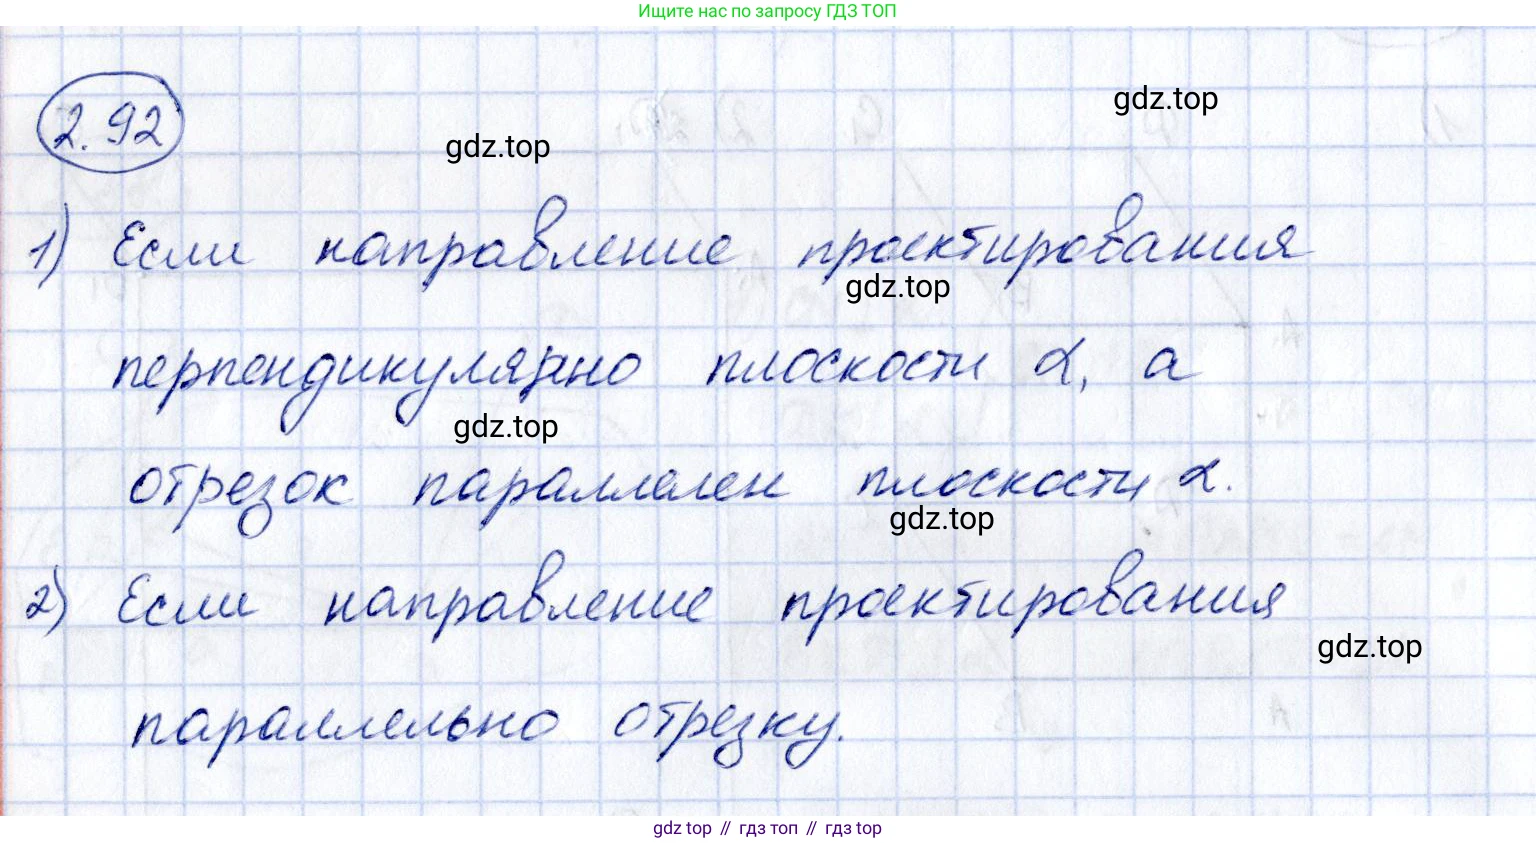 Ищите нас по запросу ГДЗ ТОП
2.92
gdz.top
gdz.top
1) Если направление проектирования
gdz.top
перпендикулярно плоскости α, а
gdz.top
отрезок параллелен плоскости α.
gdz.top
2) Если направление проектирования
gdz.top
параллельно отрезку.
gdz top // гдз топ // гдз top